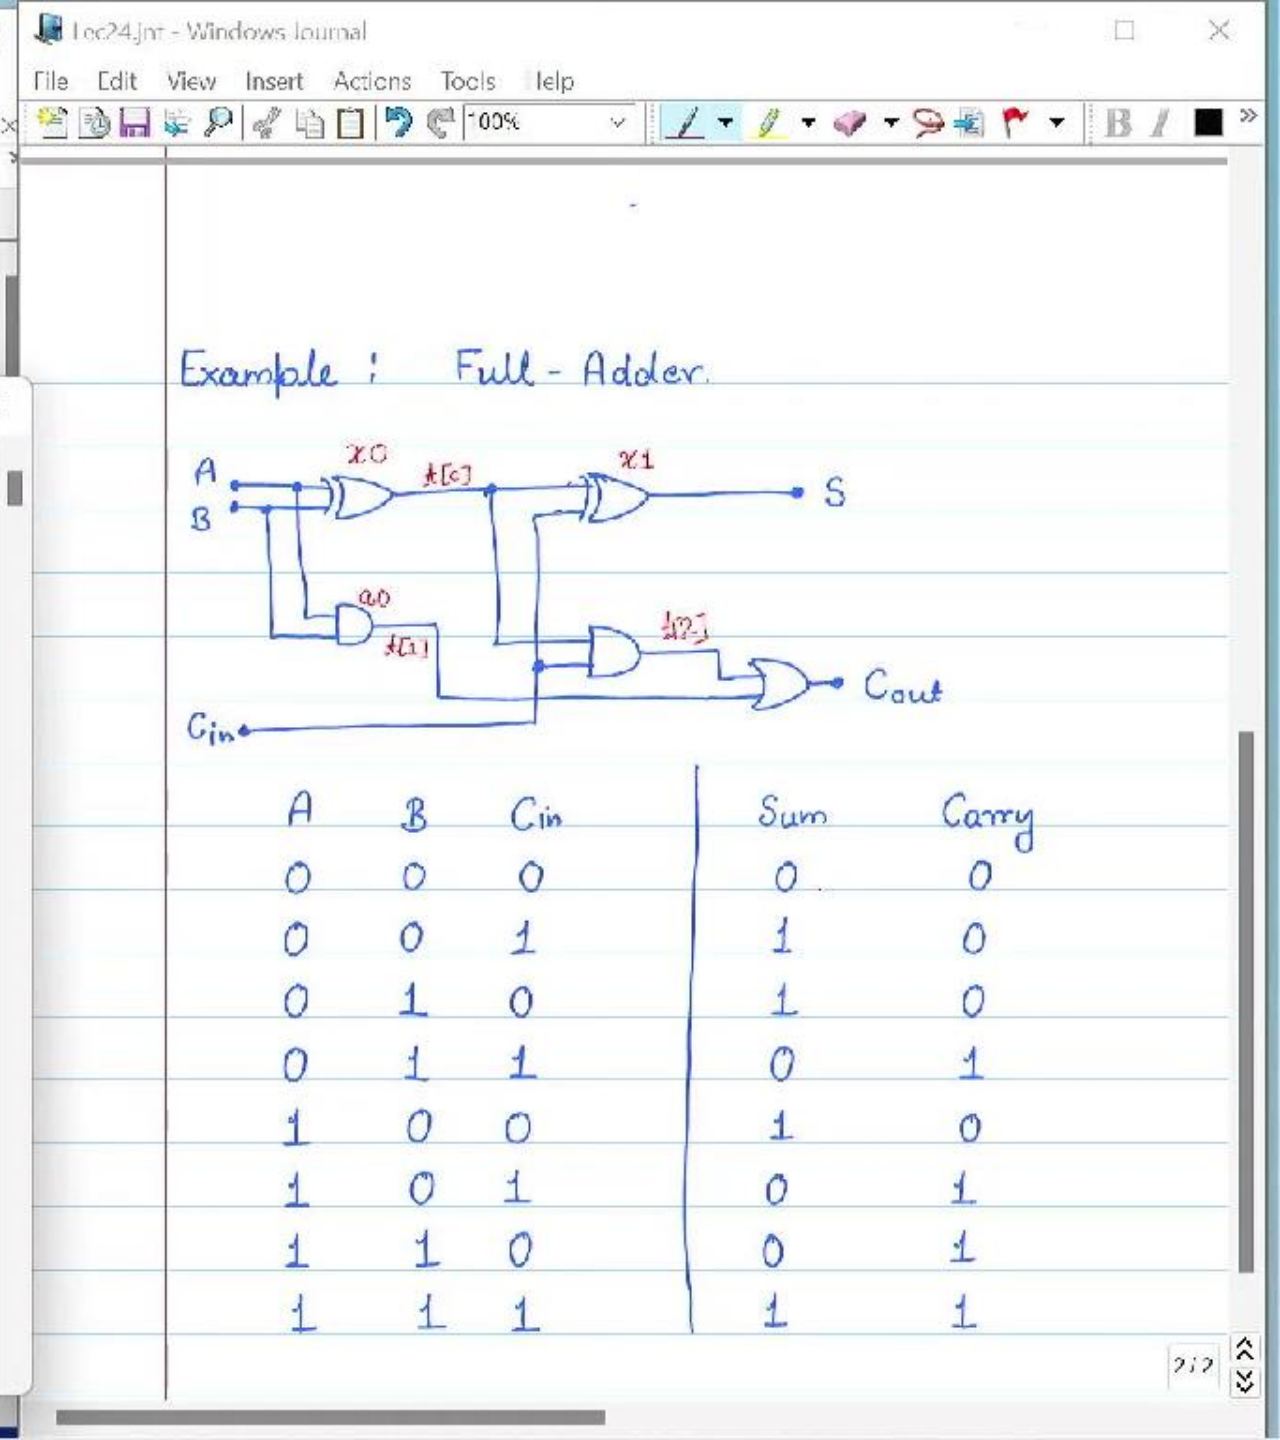 Lec24.jnt - Windows Journal
File Edit View Insert Actions Tools Help
100%
B I
Example : Full - Adder.
x0
x1
A
t[0]
S
B
a0
t[1]
t[2]
Cout
Cin
A B Cin Sum Carry
0 0 0 0 0
0 0 1 1 0
0 1 0 1 0
0 1 1 0 1
1 0 0 1 0
1 0 1 0 1
1 1 0 0 1
1 1 1 1 1
2/2